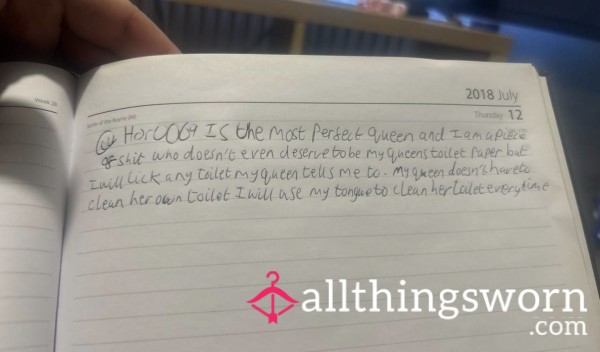 2018 July
Week 28
Thursday 12
@ Hor0069 Is the most Perfect queen and I am a piece
of shit who doesn't even deserve to be my queens toilet Paper but
I will lick any toilet my queen tells me to. My queen doesn't have to
clean her own toilet I will use my tongue to clean her toilet everytime
allthingsworn
.com